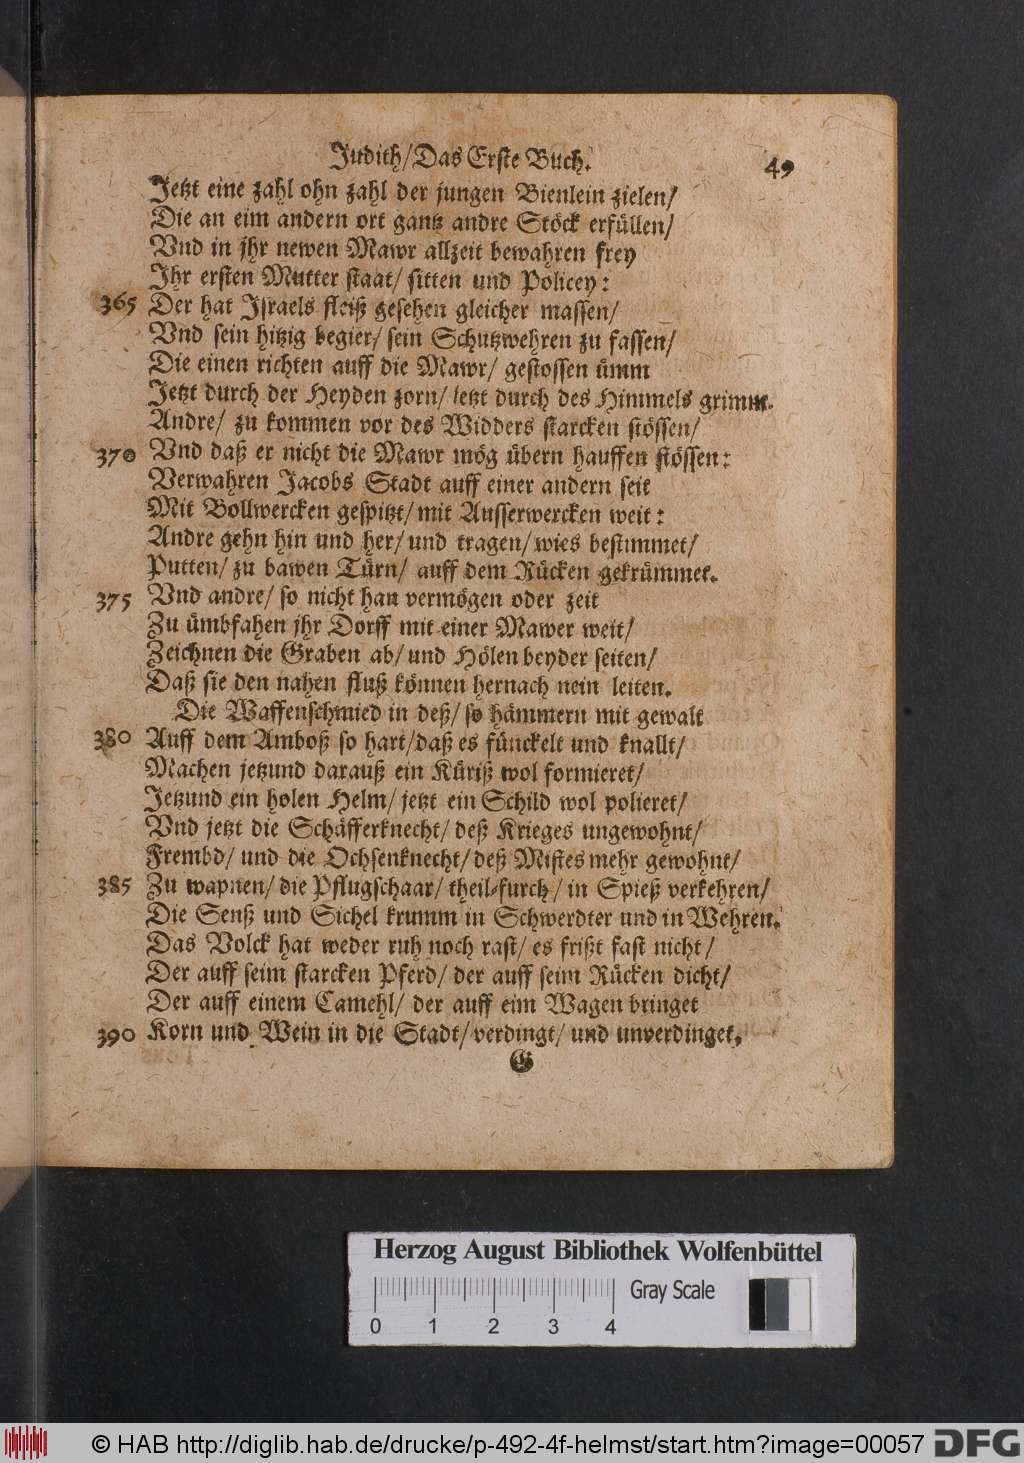 Judith/Das Erste Buch. 49
Jetzt eine zahl ohn zahl der jungen Bienlein zielen/
Die an eim andern ort gantz andre Stöck erfüllen/
Vnd in jhr newen Mawr allzeit bewahren frey
Ihr ersten Mutter staat/ sitten und Policey:
365 Der hat Israels fleiß gesehen gleicher massen/
Vnd sein hitzig begier/ sein Schutzwehren zu fassen/
Die einen richten auff die Mawr/ gestossen ümm
Jetzt durch der Heyden zorn/ jetzt durch des Himmels grimm.
Andre/ zu kommen vor des Widders starcken stössen/
370 Vnd daß er nicht die Mawr mög übern hauffen stössen:
Verwahren Jacobs Stadt auff einer andern seit
Mit Bollwercken gespitzt/ mit Ausserwercken weit:
Andre gehn hin und her/ und tragen/ wies bestimmet/
Putten/ zu bawen Türn/ auff dem Rücken gekrümmet.
375 Vnd andre/ so nicht han vermögen oder zeit
Zu ümbfahen jhr Dorff mit einer Mawer weit/
Zeichnen die Graben ab/ und Hölen beyder seiten/
Daß sie den nahen fluß können hernach nein leiten.
Die Waffenschmied in deß/ so hämmern mit gewalt
380 Auff dem Amboß so hart/daß es fünckelt und knallt/
Machen jetzund darauß ein Küriß wol formieret/
Jetzund ein holen Helm/ jetzt ein Schild wol polieret/
Vnd jetzt die Schäfferknecht/ deß Krieges ungewohnt/
Frembd/ und die Ochsenknecht/ deß Mistes mehr gewohnt/
385 Zu wapnen/ die Pflugschaar/ theil-furch/ in Spieß verkehren/
Die Senß und Sichel krumm in Schwerdter und in Wehren.
Das Volck hat weder ruh noch rast/ es frißt fast nicht/
Der auff seim starcken Pferd/ der auff seim Rücken dicht/
Der auff einem Camehl/ der auff eim Wagen bringet
390 Korn und Wein in die Stadt/ verdingt/ und unverdinget.
G
Herzog August Bibliothek Wolfenbüttel
Gray Scale
0 1 2 3 4
© HAB http://diglib.hab.de/drucke/p-492-4f-helmst/start.htm?image=00057 DFG